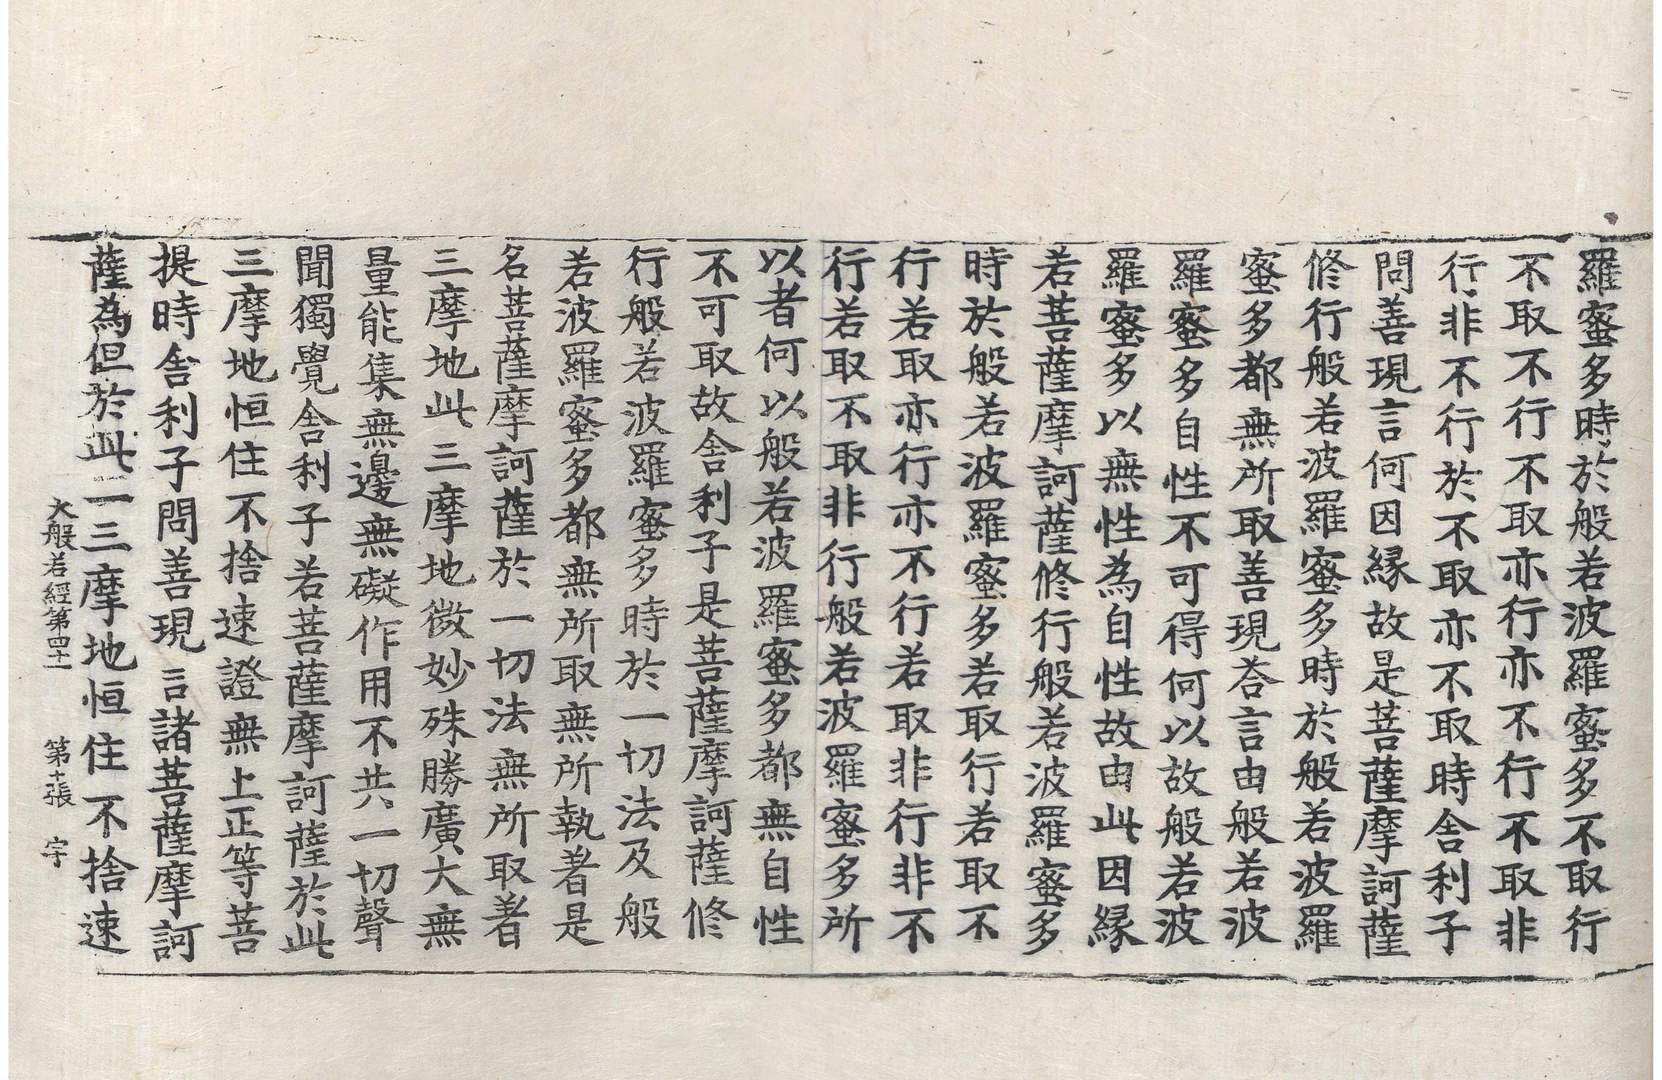 羅蜜多時於般若波羅蜜多不取行
不取不行不取亦行亦不行不取非
行非不行於不取亦不取時舍利子
問善現言何因緣故是菩薩摩訶薩
修行般若波羅蜜多時於般若波羅
蜜多都無所取善現荅言由般若波
羅蜜多自性不可得何以故般若波
羅蜜多以無性為自性故由此因緣
若菩薩摩訶薩修行般若波羅蜜多
時於般若波羅蜜多若取行若取不
行若取亦行亦不行若取非行非不
行若取不取非行般若波羅蜜多所
以者何以般若波羅蜜多都無自性
不可取故舍利子是菩薩摩訶薩修
行般若波羅蜜多時於一切法及般
若波羅蜜多都無所取無所執著是
名菩薩摩訶薩於一切法無所取著
三摩地此三摩地微妙殊勝廣大無
量能集無邊無礙作用不共一切聲
聞獨覺舍利子若菩薩摩訶薩於此
三摩地恒住不捨速證無上正等菩
提時舍利子問善現言諸菩薩摩訶
薩為但於此一三摩地恒住不捨速
大般若經第四十一 第十張 宇